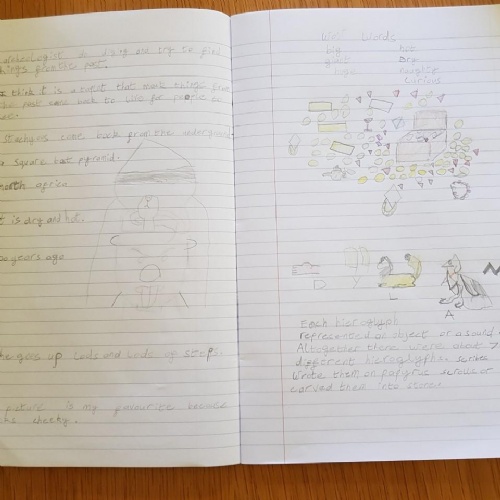 archeologist is
things from the past.
I think it is a
that made things from
the past come back to life for people to
see.
come back from the underground
a square base pyramid.
north africa.
it is dry and hot.
years ago
he goes up loads and loads of steps.
picture is my favourite because
cheeky.
Well Words
big hot
giant Dry
huge naughty
curious
D Y L A
Each hieroglyph
represented an object or a sound
Altogether there were about 7
different hieroglyphs. scribes
Wrote them on papyrus scrolls or
carved them into stone